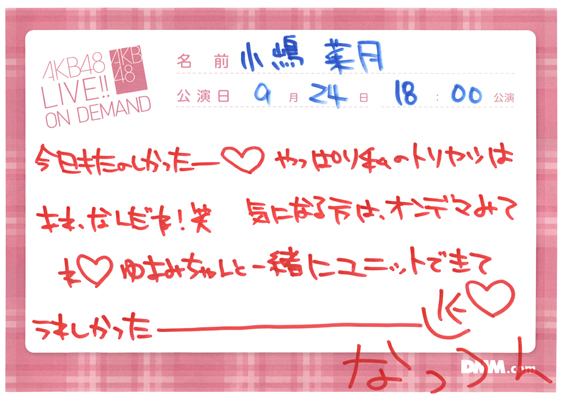 AKB48
LIVE!!
ON DEMAND
AKB
48
名前 小嶋 菜月
公演日 9月24日 18:00公演
今日もたのしかったー♡ やっぱり私のトリヤツは
まれ、なしだね!笑 気になる方は、オンデマみて
ね♡ ゆまみちゃんと一緒にユニットできて
うれしかった
♡
なっつん
DMM.com